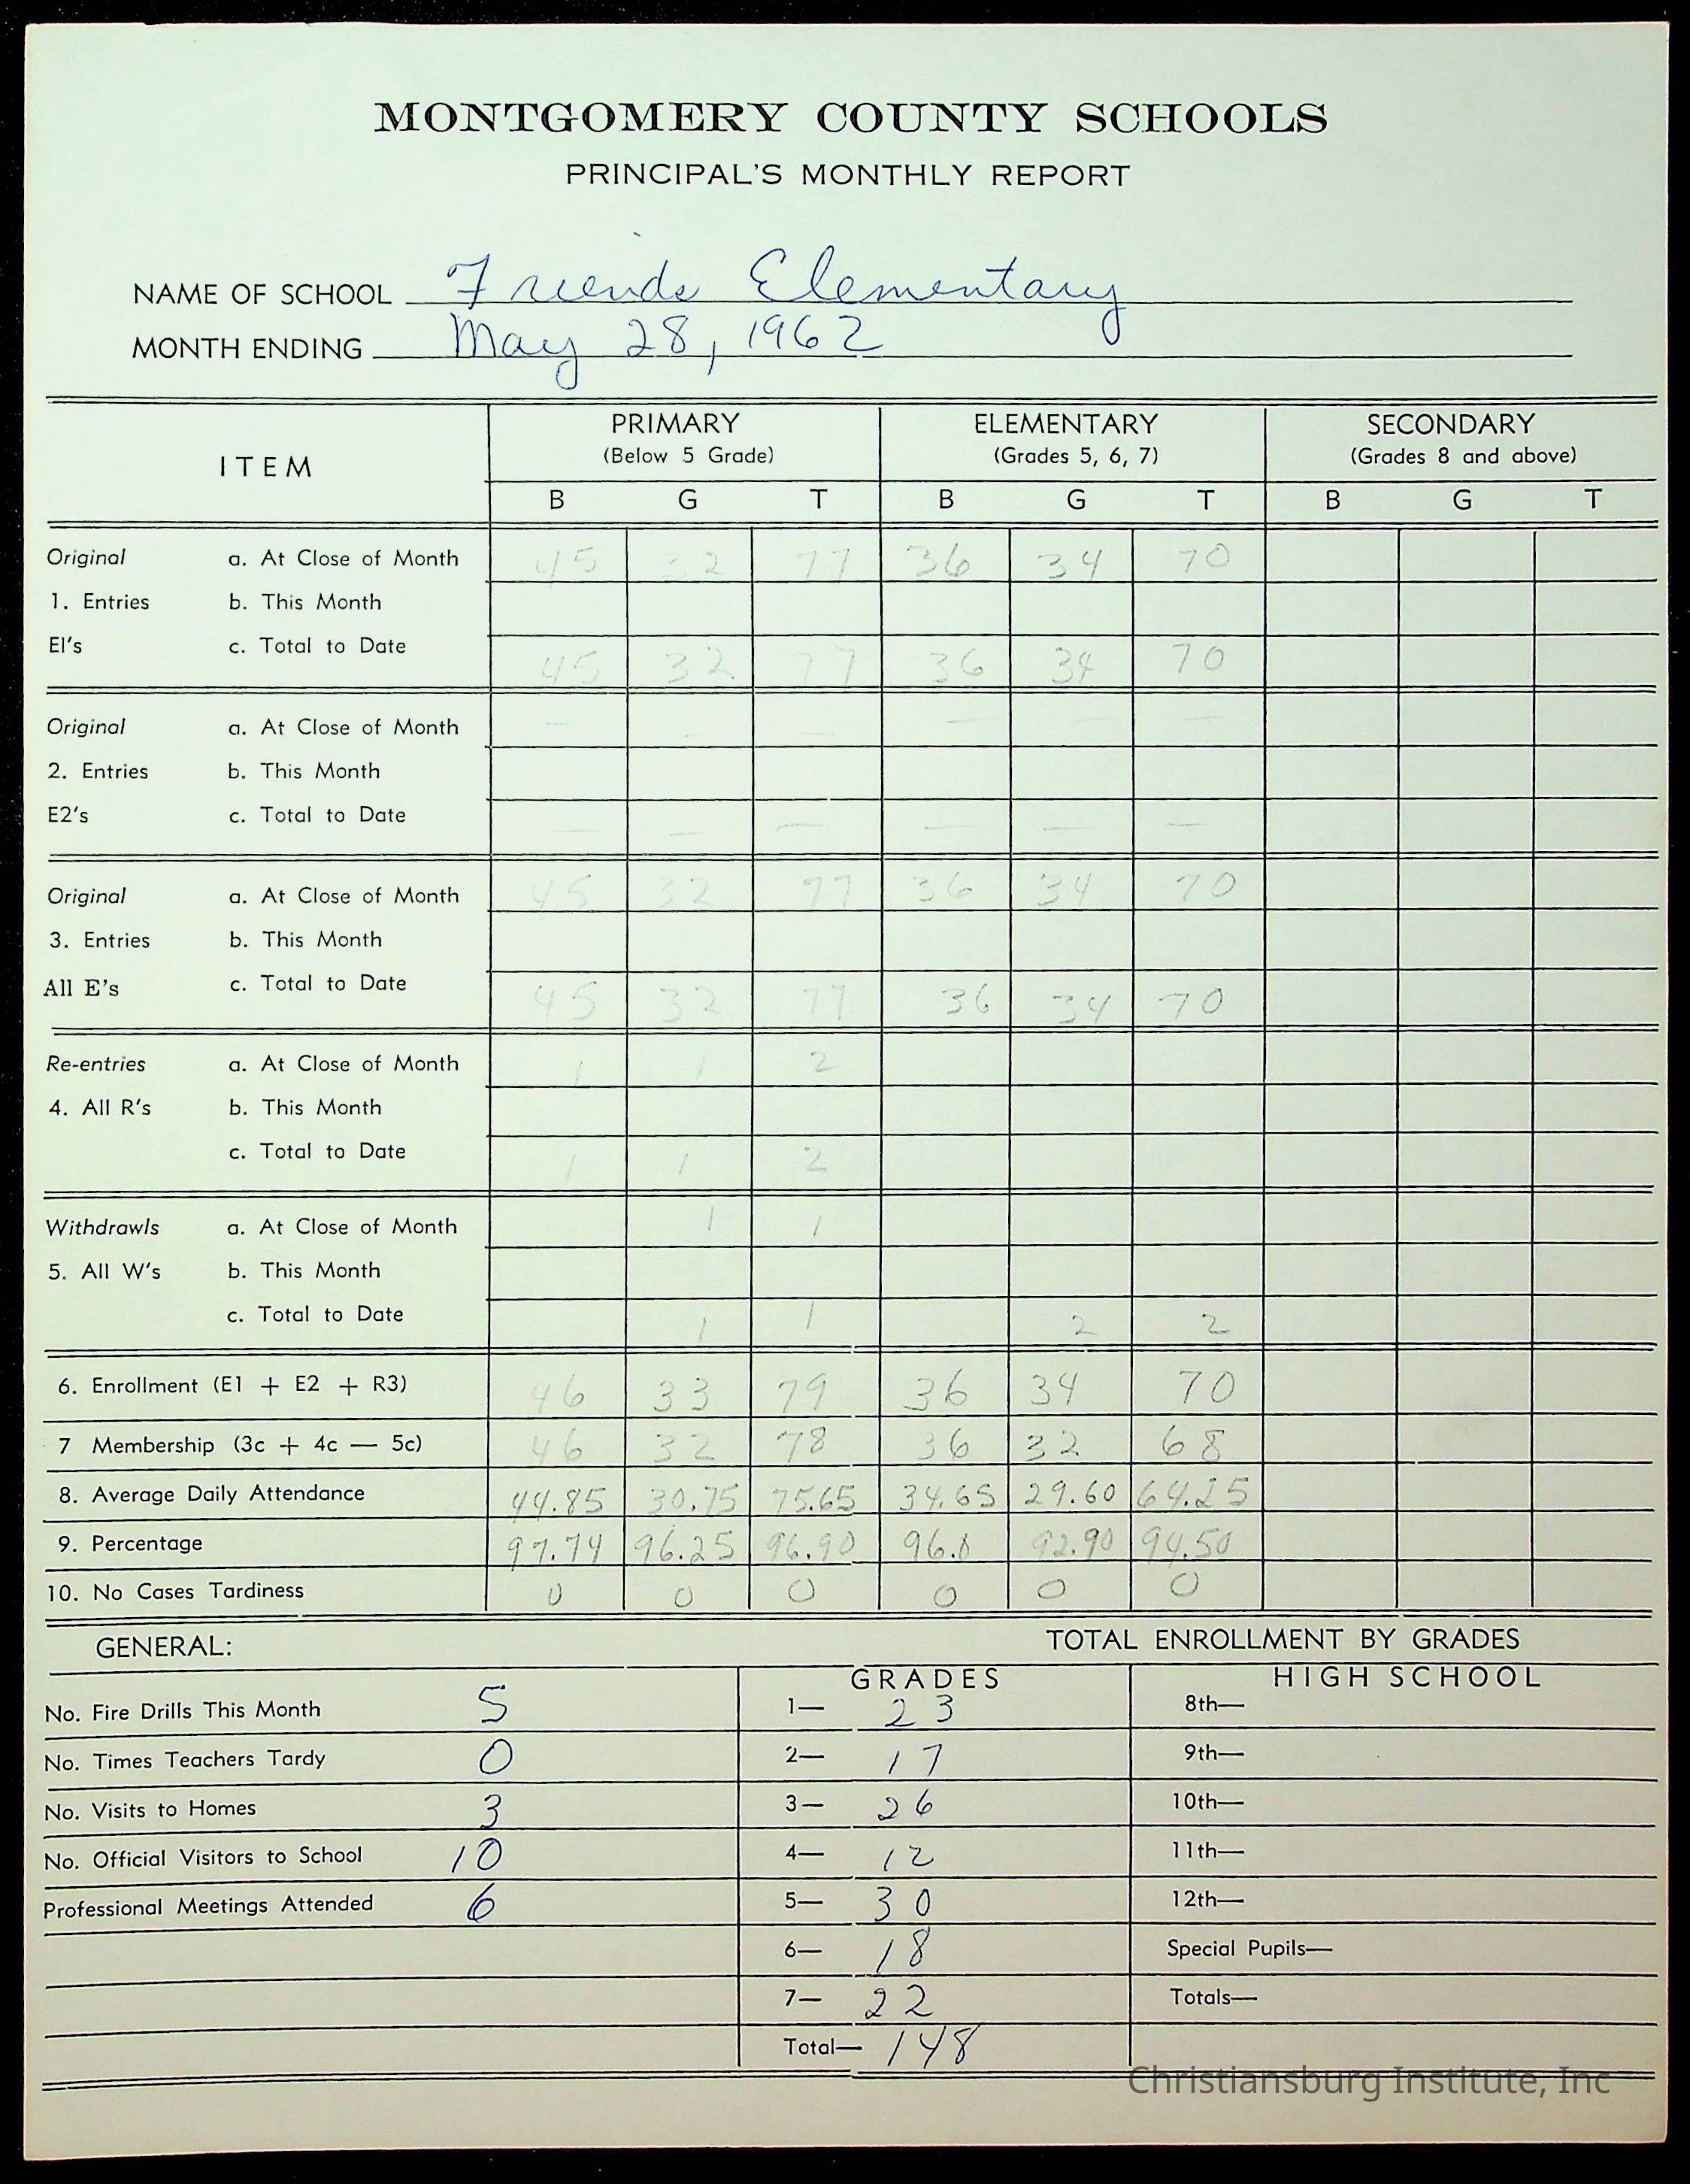 MONTGOMERY COUNTY SCHOOLS
PRINCIPAL'S MONTHLY REPORT
NAME OF SCHOOL Friends Elementary
MONTH ENDING May 28, 1962
ITEM PRIMARY (Below 5 Grade) ELEMENTARY (Grades 5, 6, 7) SECONDARY (Grades 8 and above)
B G T B G T B G T
Original a. At Close of Month 45 32 77 36 34 70
1. Entries b. This Month
El's c. Total to Date 45 32 77 36 34 70
Original a. At Close of Month — — — — — —
2. Entries b. This Month
E2's c. Total to Date — — — — — —
Original a. At Close of Month 45 32 77 36 34 70
3. Entries b. This Month
All E's c. Total to Date 45 32 77 36 34 70
Re-entries a. At Close of Month 1 1 2
4. All R's b. This Month
c. Total to Date 1 1 2
Withdrawls a. At Close of Month 1 1
5. All W's b. This Month
c. Total to Date 1 1 2 2
6. Enrollment (E1 + E2 + R3) 46 33 79 36 34 70
7 Membership (3c + 4c — 5c) 46 32 78 36 32 68
8. Average Daily Attendance 44.85 30.75 75.65 34.65 29.60 64.25
9. Percentage 97.74 96.25 96.90 96.0 92.90 94.50
10. No Cases Tardiness 0 0 0 0 0 0
GENERAL: TOTAL ENROLLMENT BY GRADES
GRADES HIGH SCHOOL
No. Fire Drills This Month 5 1— 23 8th—
No. Times Teachers Tardy 0 2— 17 9th—
No. Visits to Homes 3 3— 26 10th—
No. Official Visitors to School 10 4— 12 11th—
Professional Meetings Attended 6 5— 30 12th—
6— 18 Special Pupils—
7— 22 Totals—
Total— 148
Christiansburg Institute, Inc